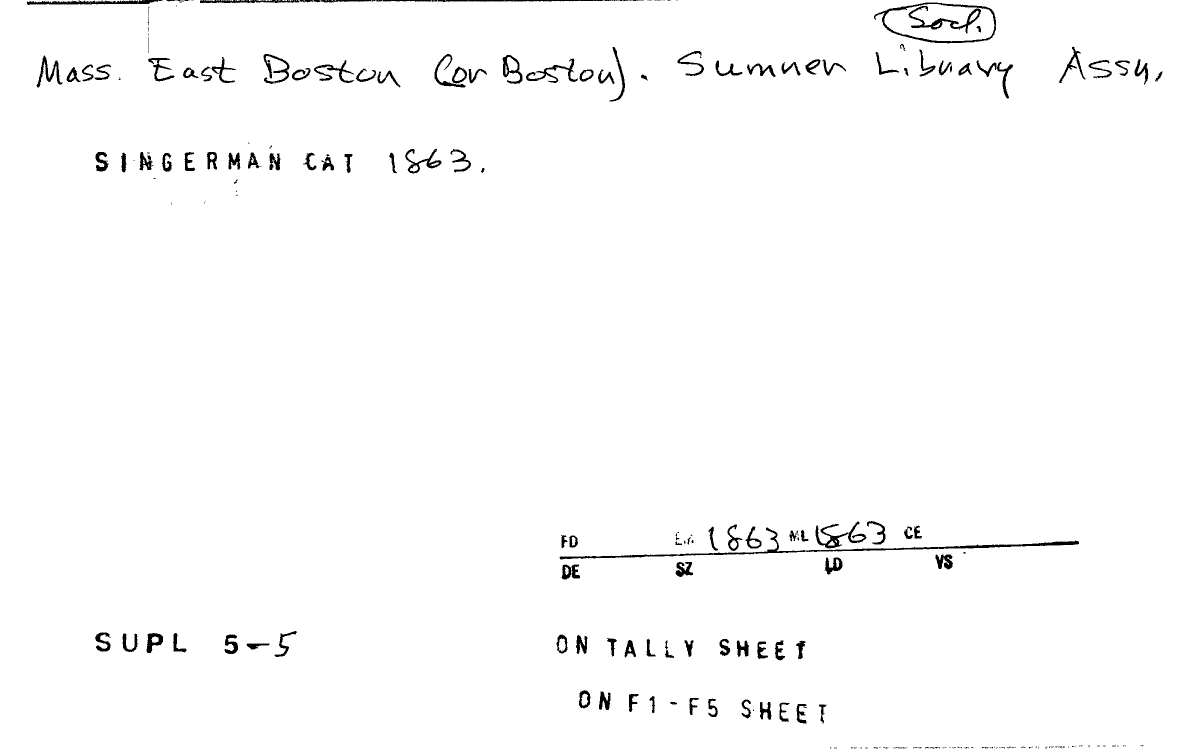 Socl.
Mass. East Boston (or Boston). Sumner Library Assn.
SINGERMAN CAT 1863.
FD 1863 ML 1863 CE
DE SZ LD VS
SUPL 5-5
ON TALLY SHEET
ON F1-F5 SHEET